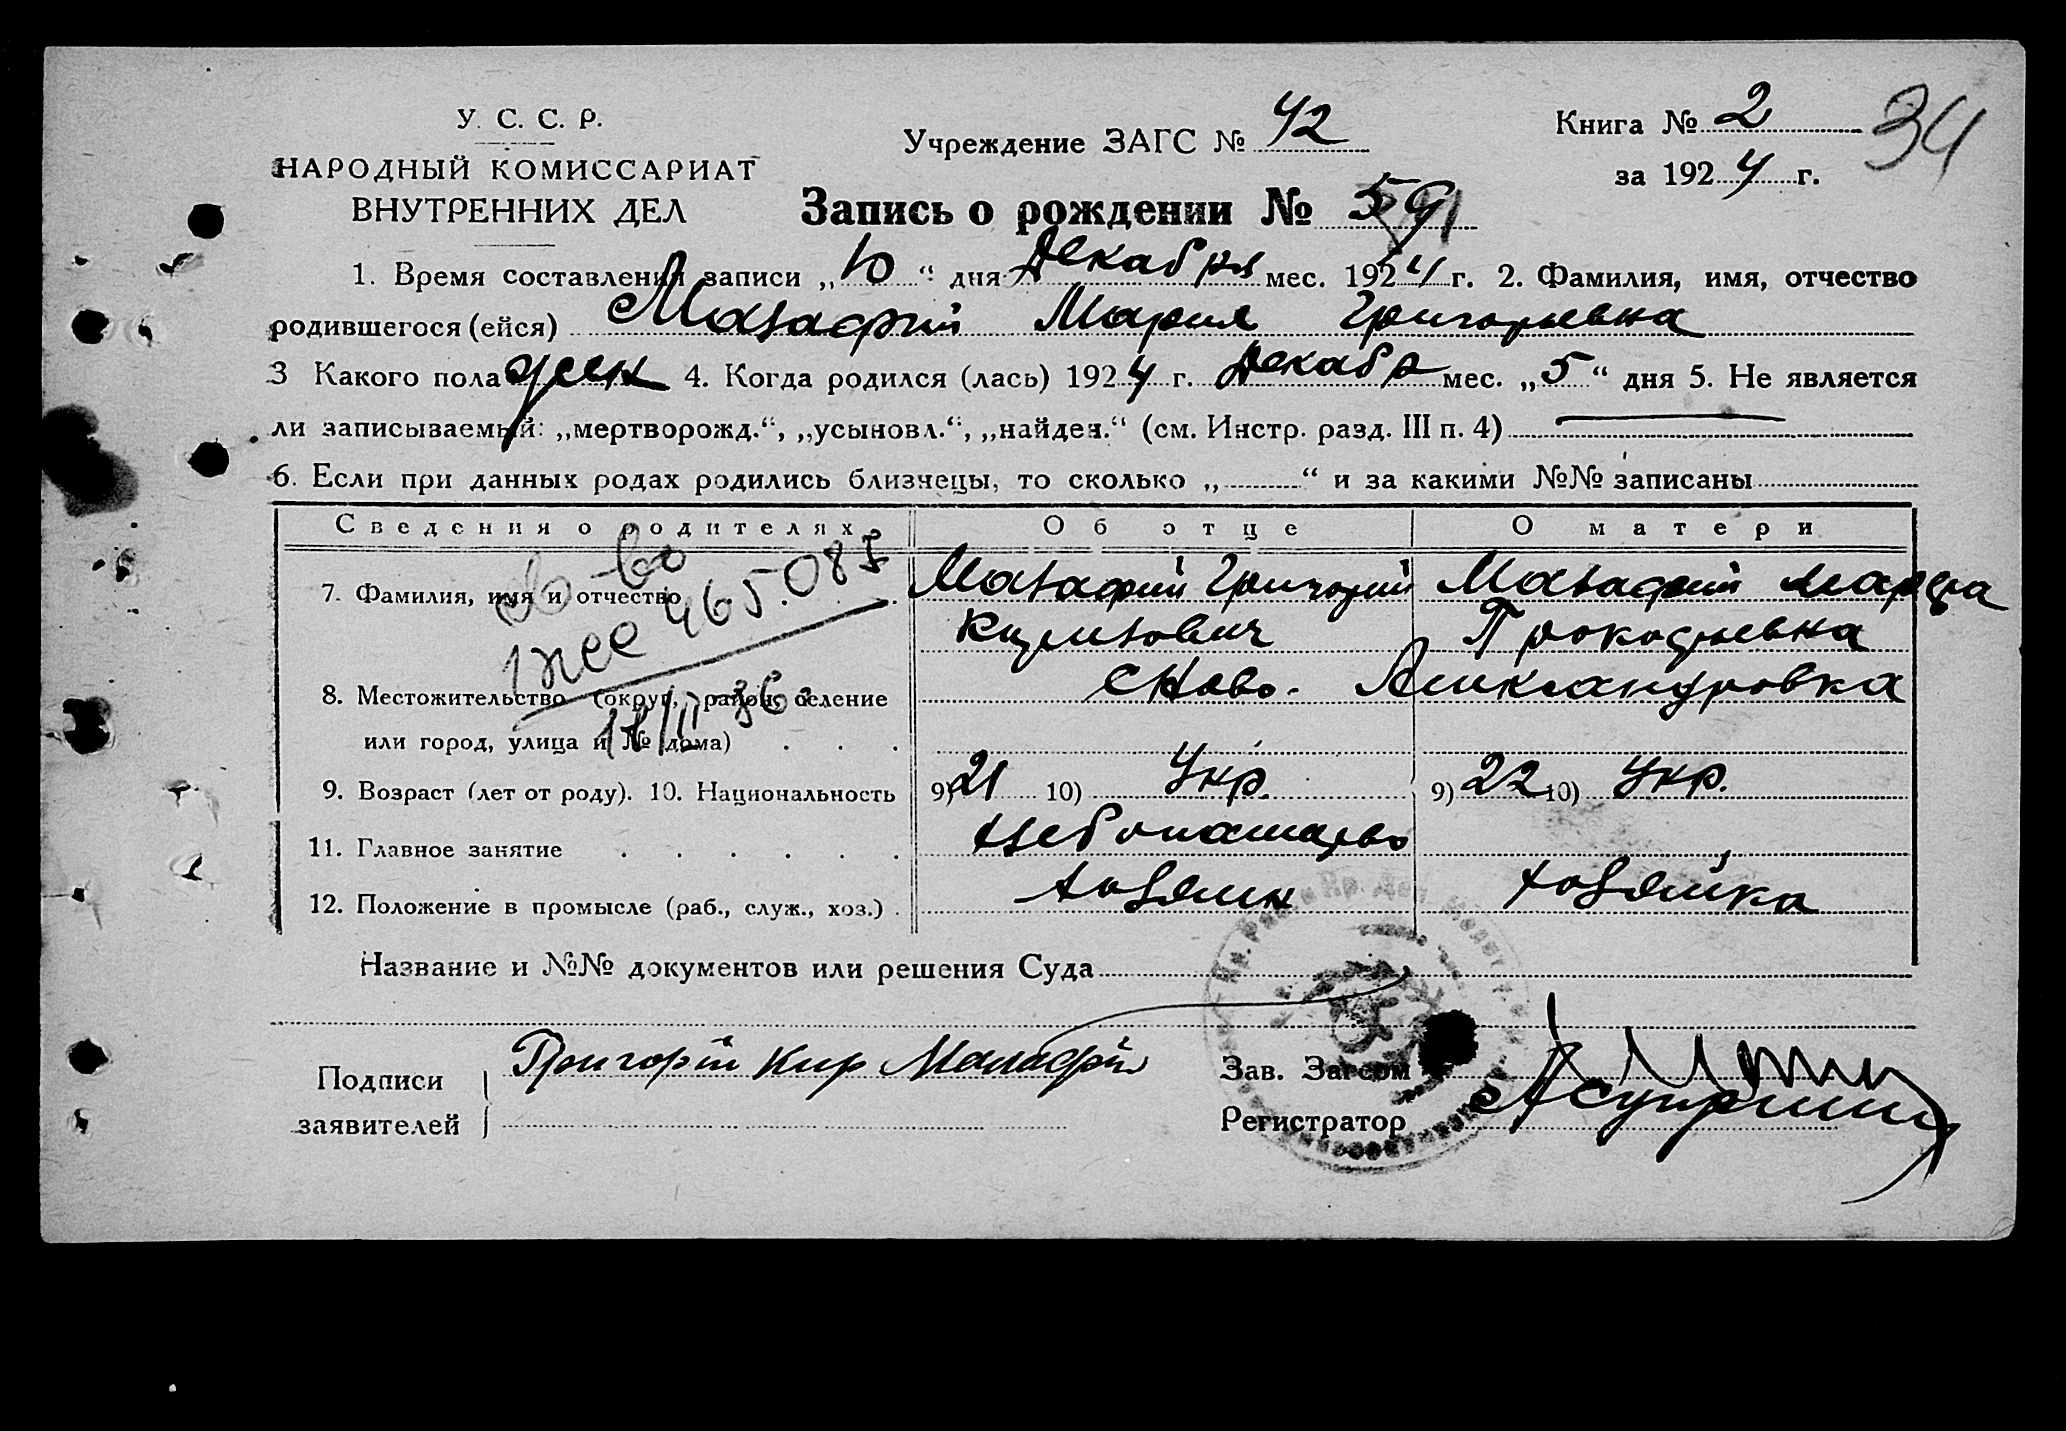 У. С. С. Р.
НАРОДНЫЙ КОМИССАРИАТ
ВНУТРЕННИХ ДЕЛ
Учреждение ЗАГС № 42
Книга № 2
34
за 1924 г.
Запись о рождении № 59
1. Время составления записи „10“ дня Декабря мес. 1924 г. 2. Фамилия, имя, отчество
родившегося (ейся) Малафий Мария Григорьевна
3 Какого пола жен 4. Когда родился (лась) 1924 г. Декабр мес. „5“ дня 5. Не является
ли записываемый: „мертворожд.“, „усыновл.“, „найден.“ (см. Инстр. разд. III п. 4)
6. Если при данных родах родились близнецы, то сколько „ “ и за какими №№ записаны
Сведения о родителях Об отце О матери
7. Фамилия, имя и отчество Малафий Григорий Малафий Марфа
Прокофьевна
с Ново- Александровка
8. Местожительство (округ, район, селение
или город, улица и № дома)
св-во
465.085
9. Возраст (лет от роду). 10. Национальность 9) 21 10) Укр. 9) 22 10) Укр.
11. Главное занятие хлебопашество
12. Положение в промысле (раб., служ., хоз.) хозяин хозяйка
Название и №№ документов или решения Суда
Подписи
заявителей
Григорій Кир Малафій
Зав. Загсом
Регистратор